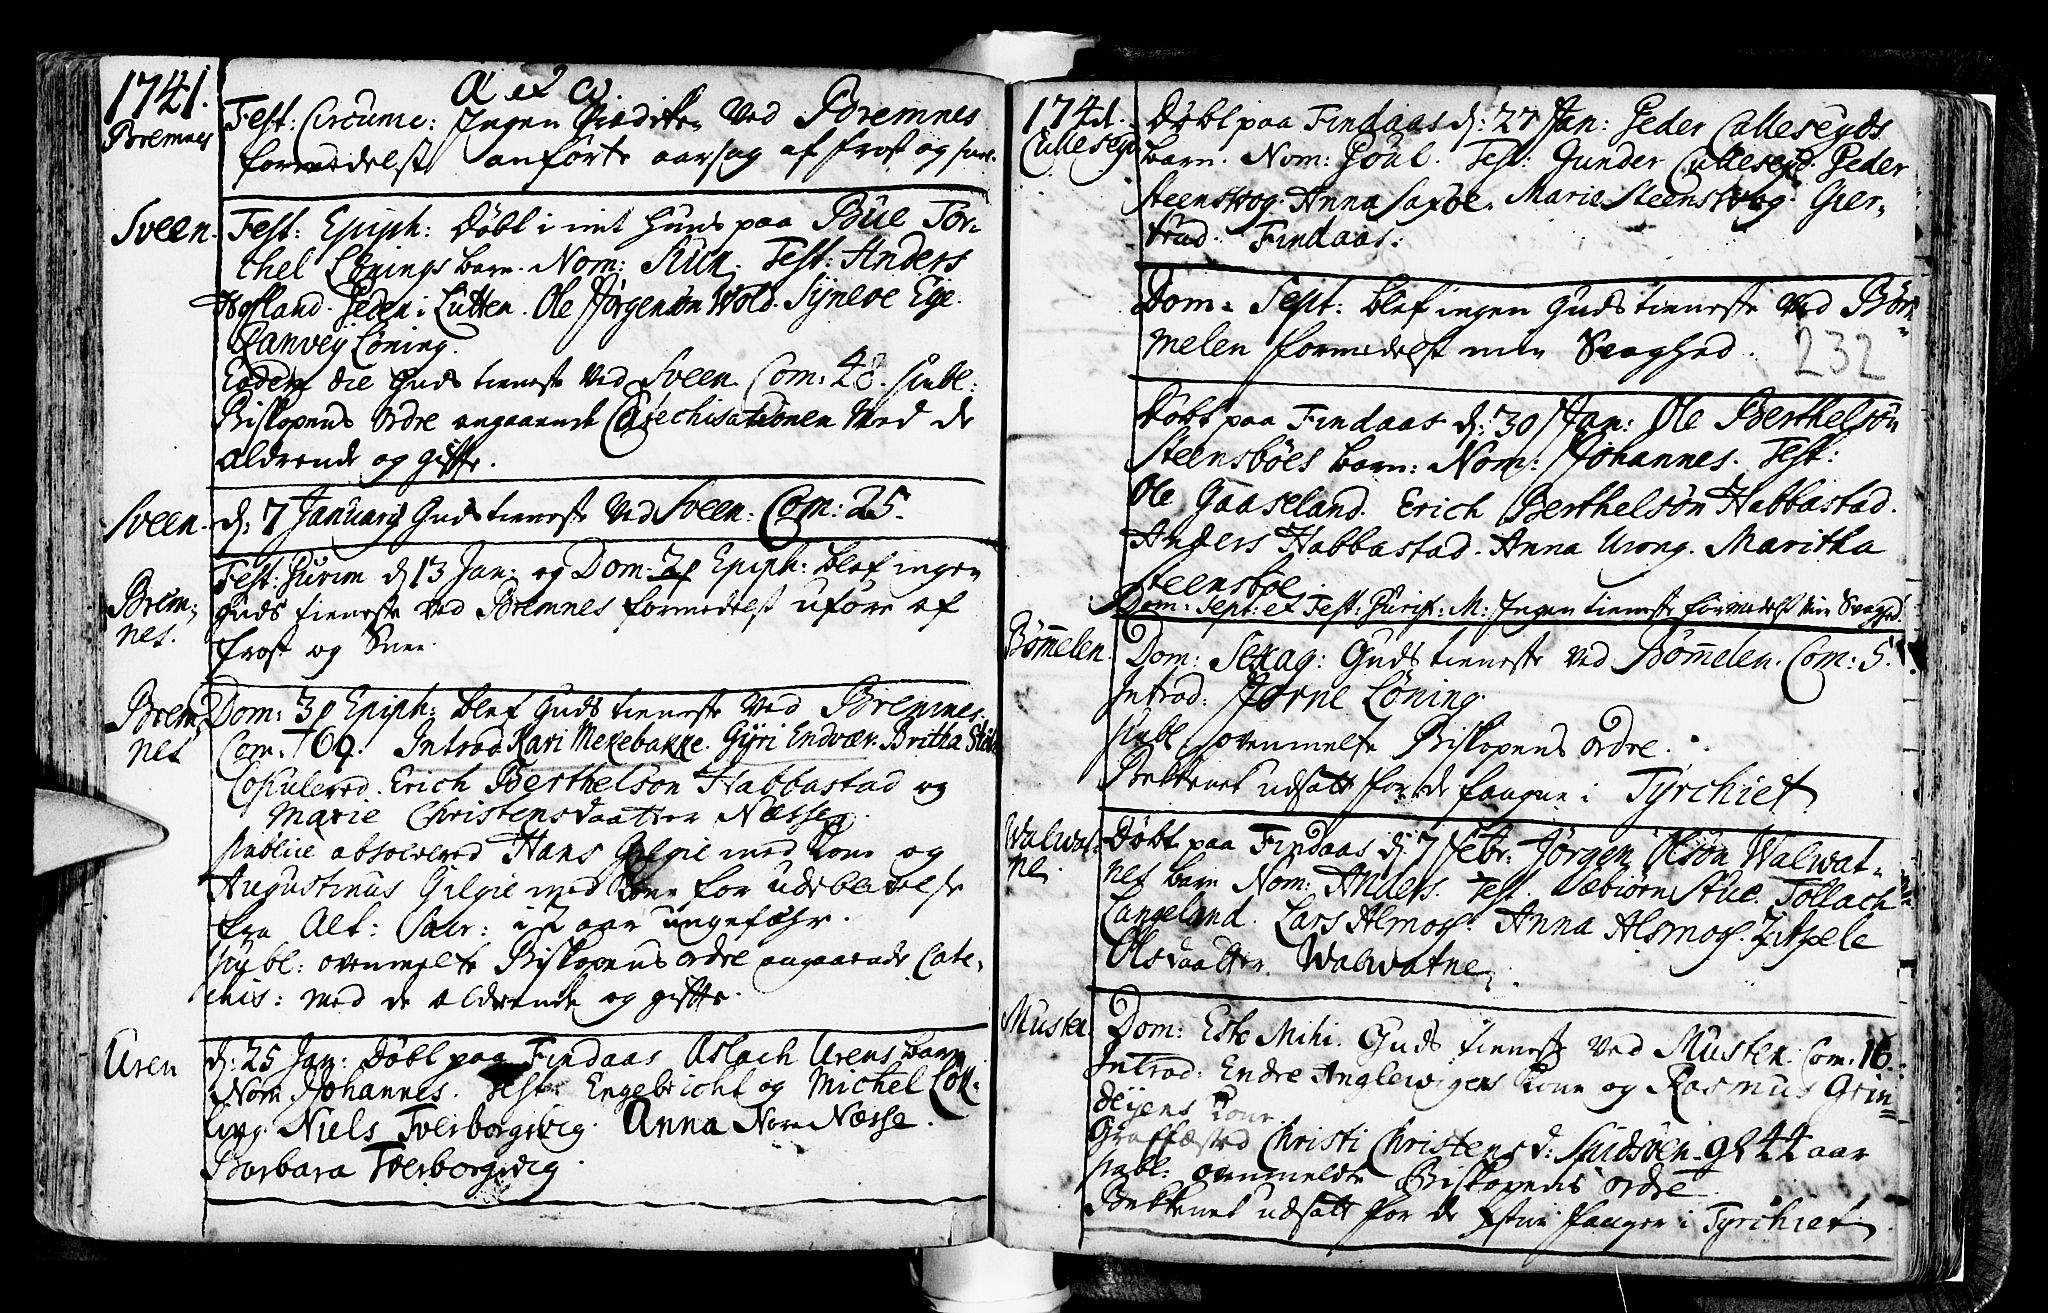 1741.
A et ω.
Bremnes
Fest: Circumc: Ingen Prædiken ved Bremnes
formedelst anførte aarsag af frost og snee.
Sveen.
Fest: Epiph: Døbt i mit huus paa Bue Tor-
chel Lønings barn. Nom: Kun. Test: Anders
Hofland. Peder i Lutten. Ole Jørgensøn Wold. Syneve Ege.
Ranvey Løning.
Gudstieneste ved Sveen. Com: 48. publ:
Biskopens ordre angaaende Catechisationen med de
aldrende og gifte.
Sveen.
d: 7 Januarij Gudstieneste ved Sveen: Com: 25.
Brem-
nes.
Fest: d 13 Jan: og Dom: 2 p Epiph: blef ingen
Gudstieneste ved Bremnes formedelst uføre af
frost og Snee.
Brem-
nes
Dom: 3 p Epiph: blef Gudstieneste ved Bremnes.
Com. 109. Introd. Kari Mekebakke. Gyri Endvær. Britha
Copulered. Erich Berthelsøn Habbastad og
Marie Christensdaatter Næsse.
publice absolvered Hans Gilgie med kone og
Augustinus Gilgie med kone for udeblivelse
fra Alt: Sacr: i 2 aar ungefæhr.
publ: ovenmelte Biskopens ordre angaaende Cate-
chis: med de aldrende og gifte.
Uren
d: 25 Jan: Døbt paa Findaas Aslach Urens barn
Nom Johannes. Test: Engebricht og Michel Løk-
ling. Niels Tverborgsvig. Anna Nore Næsse.
Barbara Tverborgsvig.
1741.
Cullesejd
Døbt paa Findaas d: 27 Jan: Peder Cullesejds
barn. Nom: Poul. Test: Gunder Cullesejd. Peder
Steensvog. Anna Saxøe. Marie Steensvog. Gier-
trud Findaas.
Dom: Sept: blef ingen Gudstieneste ved Bøm-
melen formedelst min Svaghed.
232
Døbt paa Findaas d: 30 Jan: Ole Berthelsøn
Steensbøes barn: Nom: Johannes. Test:
Ole Gaaseland. Erich Berthelsøn Habbastad.
Anders Habbastad. Anna Urong. Maritha
Steensbøe
Dom: Sept: et Fest: Purif: M: Ingen tieneste formedelst min Svaghed.
Bømmelen
Dom: Sexag: Gudstieneste ved Bømmelen. Com: 5.
Introd: Jorne Løning.
publ: ovenmelte Biskopens ordre.
Bekkenet udsatt for de fangne i Tyrchiet
Walvat-
ne.
Døbt paa Findaas d: 7 Febr: Jørgen Olsøn Walvat-
nes barn Nom: Anders. Test. Sæbiørn Stue. Tollach
Langeland. Lars Almog. Anna Alsmog. Zitzele
Olsdaatter Walvatne.
Muster.
Dom: Esto Mihi. Gudstieneste ved Muster. Com: 16.
Introd: Endre Anglevigens kone og Rasmus Grin-
dejens kone
Graffæsted Christi Christensd: gl 44 aar
publ: ovenmeldte Biskopens ordre
Bekkenet udsatt for de fanger i Tyrchiet